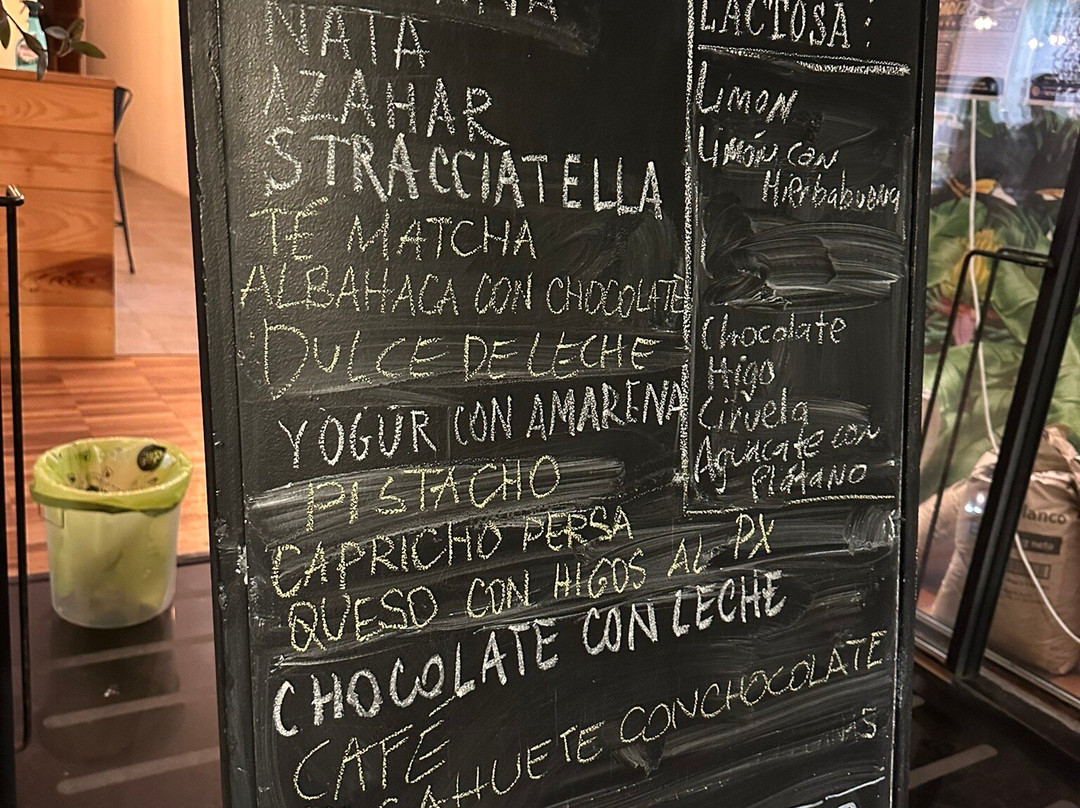 NATA
AZAHAR
STRACCIATELLA
TÉ MATCHA
ALBAHACA CON CHOCOLATE
DULCE DE LECHE
YOGUR CON AMARENA
PISTACHO
CAPRICHO PERSA
QUESO CON HIGOS AL PX
CHOCOLATE CON LECHE
CAFÉ
CON CHOCOLATE
LACTOSA:
Limon
Limón con
Hierbabuena
Chocolate
Higo
Ciruela
Aguacate con
Plátano